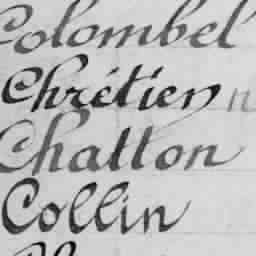 Colombel
Chrétien
Chatton
Collin